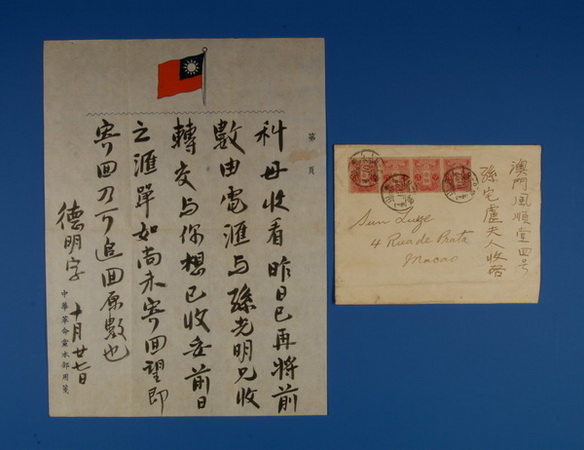 第 頁
科母收看昨日已再將前
數由電滙与孫光明兄收
轉交与你想已收妥前日
之滙單如尚未寄回望即
寄回乃可追回原數也
德明字 十月廿七日
中華革命黨本部用箋
澳門風順堂四号
孫宅盧夫人收啓
Sun Luge
4 Rua de Prata
Macao